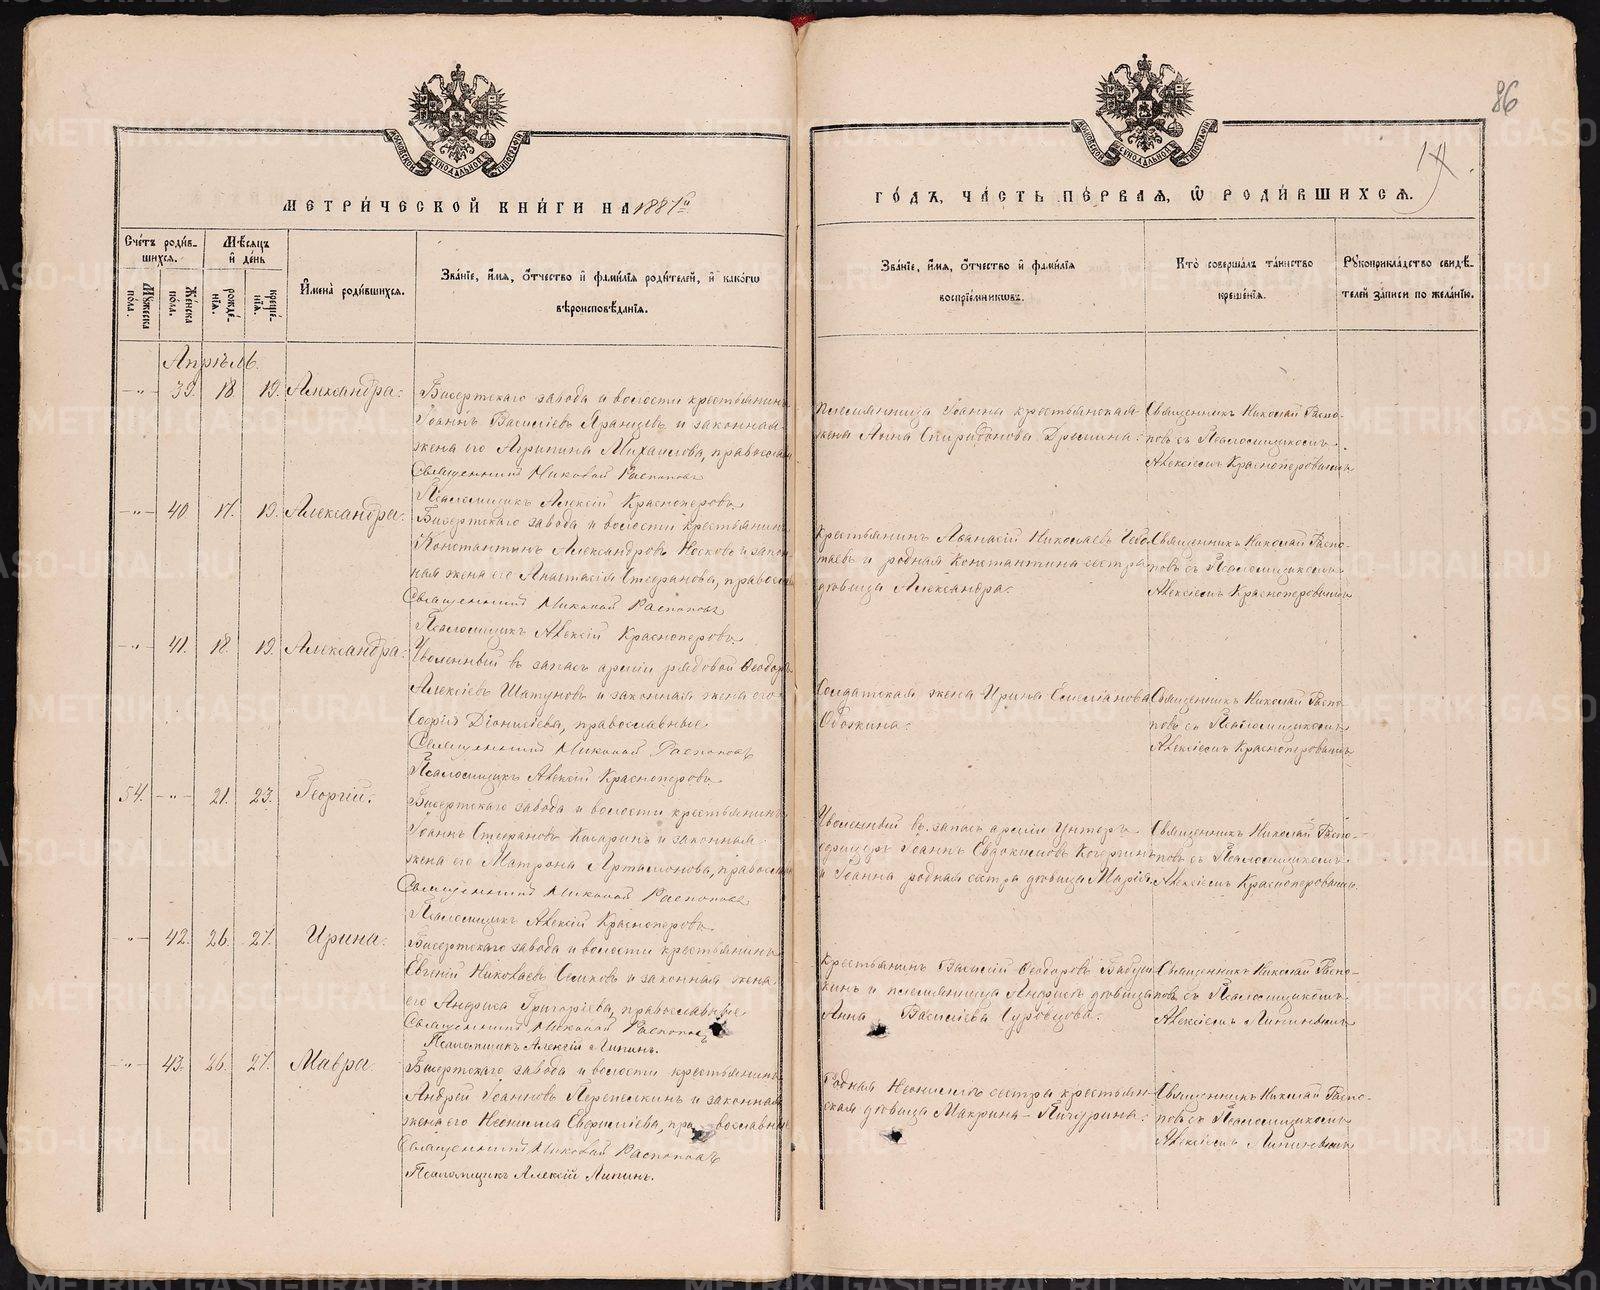 86
МЕТРИЧЕСКОЙ КНИГИ НА 1887й
ГОДЪ, ЧАСТЬ ПЕРВАЯ, Ѡ РОДИВШИХСЯ.
Счетъ родив-
шихся.
Мужеска пола.
Женска пола.
Мѣсяцъ
и день
рожде-
нія.
креще-
нія.
Имена родившихся.
Званіе, имя, отчество и фамилія родителей, и какогѡ
вѣроисповѣданія.
Званіе, имя, отчество и фамилія
воспріемникѡвъ.
Кто совершалъ таинство
крещенія.
Рукоприкладство свидѣ-
телей записи по желанію.
Апрѣль.
-"- 39. 18. 19. Александра.
Бисертскаго завода и волости крестьянинъ
Іоаннъ Василіевъ и законная
жена его Агрипина Михаилова, православн
Священникъ Николай Распоповъ
Псаломщикъ Алексій Красноперовъ
племянница Іоанна крестьянская
жена Анна Спиридонова
Священникъ Николай Распо-
повъ съ Псаломщикомъ
Алексіемъ Красноперовымъ
-"- 40 17. 19. Александра.
Бисертскаго завода и волости крестьянинъ
Константинъ Александровъ Носковъ и закон
ная жена его Анастасія Стефанова, православн
Священникъ Николай Распоповъ
Псаломщикъ Алексій Красноперовъ
Крестьянинъ Аѳанасій Николаевъ
и родная Константина сестра
дѣвица Александра.
Священникъ Николай Распо-
повъ съ Псаломщикомъ
Алексіемъ Красноперовымъ
-"- 41. 18. 19. Александра.
Уволенный въ запасъ арміи рядовой Ѳеодоръ
Алексіевъ Шатуновъ и законная жена его
Софія Діонисіева, православные
Священникъ Николай Распоповъ
Псаломщикъ Алексій Красноперовъ
Солдатская жена Ирина Емеліанова
Священникъ Николай Распо-
повъ съ Псаломщикомъ
Алексіемъ Красноперовымъ
54. -"- 21. 23. Георгій.
Бисертскаго завода и волости крестьянинъ
Іоаннъ Стефановъ и законная
жена его Матрона Артамонова, православн
Священникъ Николай Распоповъ
Псаломщикъ Алексій Красноперовъ
Уволенный въ запасъ арміи Унтеръ-
офицеръ Іоаннъ Евдокимовъ
и Іоанна родная сестра дѣвица Марія
Священникъ Николай Распо-
повъ съ Псаломщикомъ
Алексіемъ Красноперовымъ
-"- 42. 26. 27. Ирина.
Бисертскаго завода и волости крестьянинъ
Евгеній Николаевъ и законная жена
его Григоріева, православные
Священникъ Николай Распоповъ
Псаломщикъ Алексій Липинъ.
Крестьянинъ Василій Ѳеодоровъ Бабуш
кинъ и племянница дѣвица
Анна Василіева
Священникъ Николай Распо-
повъ съ Псаломщикомъ
Алексіемъ Липинымъ
-"- 43. 26. 27. Мавра.
Бисертскаго завода и волости крестьянинъ
Андрей Іоанновъ Перепелкинъ и законная
жена его Неонила православн
Священникъ Николай Распоповъ
Псаломщикъ Алексій Липинъ.
Родная Неонилы сестра крестьян-
ская дѣвица Макрина Пичурина.
Священникъ Николай Распо-
повъ съ Псаломщикомъ
Алексіемъ Липинымъ
METRIKI.GASO-URAL.RU